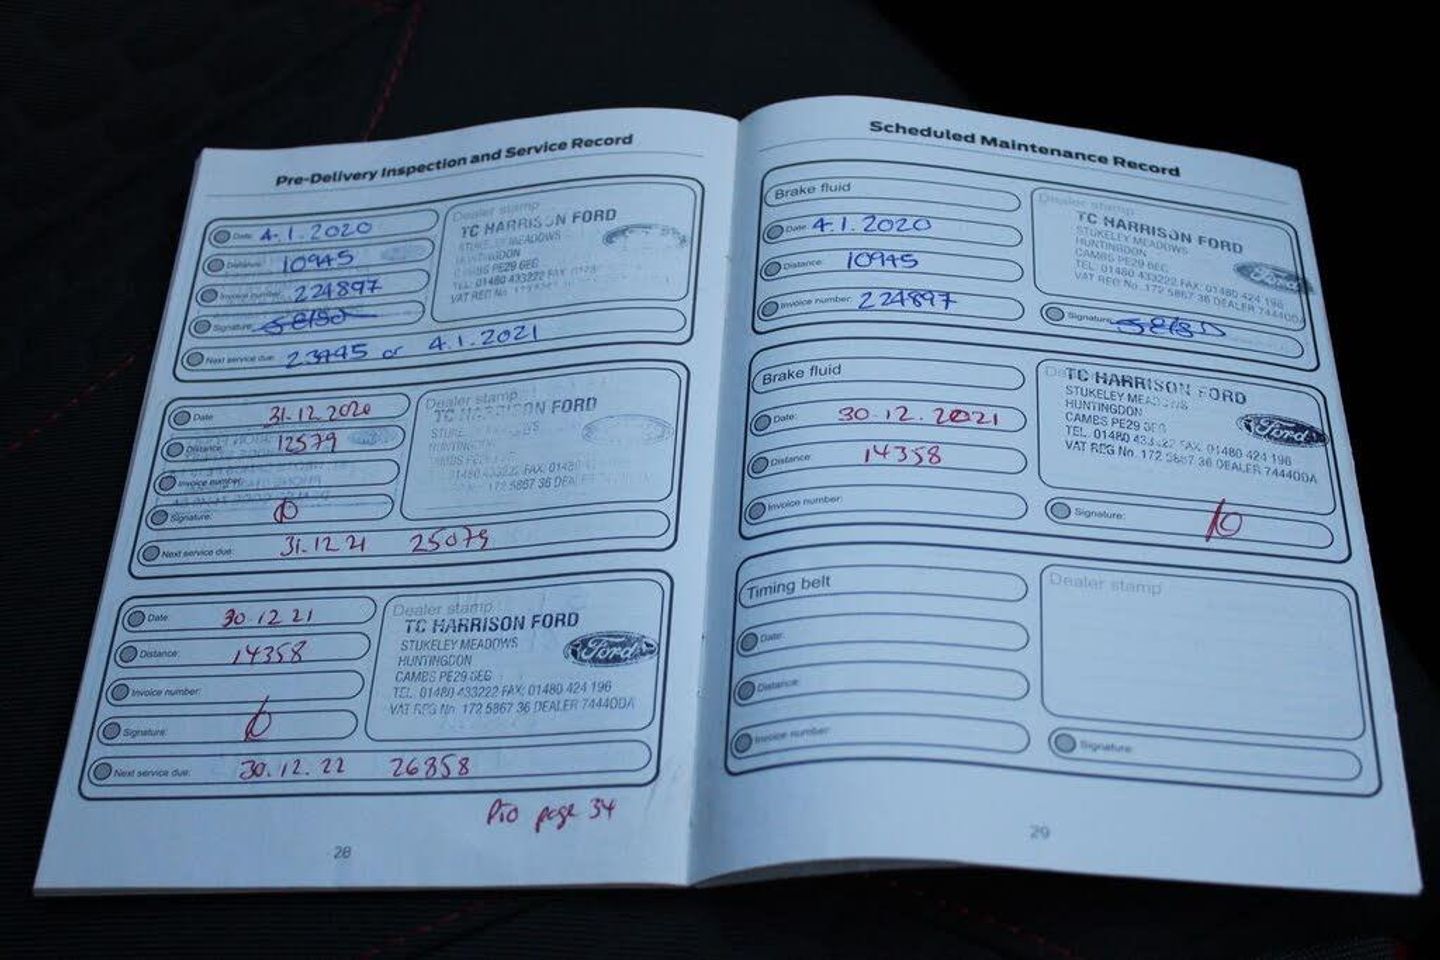 Pre-Delivery Inspection and Service Record
Date: 4.1.2020
Distance: 10945
Invoice number: 224897
Signature:
Next service due: 23945 or 4.1.2021
Dealer stamp
TC HARRISON FORD
STUKELEY MEADOWS
HUNTINGDON
CAMBS PE29 6EG
TEL: 01480 433222 FAX:
VAT REG No.
Date: 31.12.2020
Distance: 12579
Invoice number:
Signature:
Next service due: 31.12.21 25079
Dealer stamp
TC HARRISON FORD
HUNTINGDON
01480 433222 FAX: 01480
172 5867 36 DEALER
Date: 30.12.21
Distance: 14358
Invoice number:
Signature:
Next service due: 30.12.22 26858
Dealer stamp
TC HARRISON FORD
STUKELEY MEADOWS
HUNTINGDON
CAMBS PE29 6EG
TEL. 01480 433222 FAX: 01480 424 196
VAT REG No. 172 5867 36 DEALER 74440DA
Ford
PTO page 34
28
Scheduled Maintenance Record
Brake fluid
Date: 4.1.2020
Distance: 10945
Invoice number: 224897
Dealer stamp
TC HARRISON FORD
STUKELEY MEADOWS
HUNTINGDON
CAMBS PE29 6EG
TEL: 01480 433222 FAX: 01480 424 196
VAT REG No. 172 5867 36 DEALER 74440DA
Ford
Signature:
Brake fluid
Date: 30.12.2021
Distance: 14358
Invoice number:
TC HARRISON FORD
STUKELEY MEADOWS
HUNTINGDON
CAMBS PE29 6EG
TEL. 01480 433222 FAX. 01480 424 196
VAT REG No. 172 5867 36 DEALER 74440DA
Ford
Signature:
Timing belt
Date:
Distance:
Invoice number:
Dealer stamp
Signature:
29